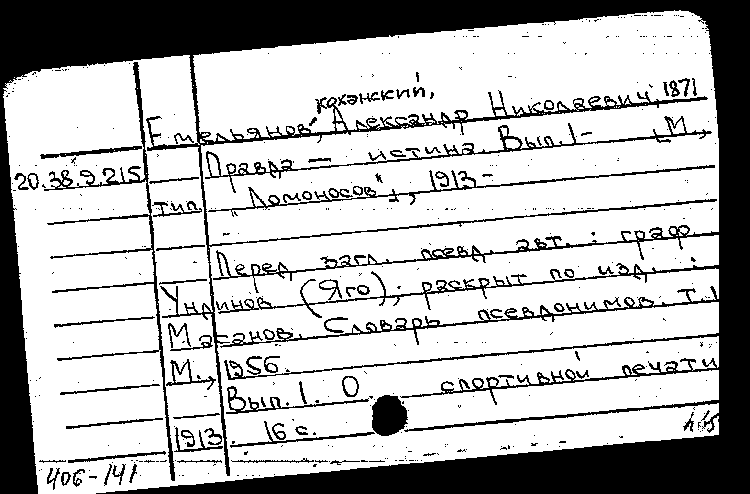 Кохэнский,
Емельянов, Александр Николаевич, 1871
20.38.9.215 Правда — истина. Вып. 1- [М.,
тип. "Ломоносов"], 1913-
Перед загл. псевд. авт.: граф
Ундинов (Яго); раскрыт по изд.:
Масанов. Словарь псевдонимов. Т.1
М., 1956.
Вып. 1. О спортивной печати
1913. 16 с.
406-141